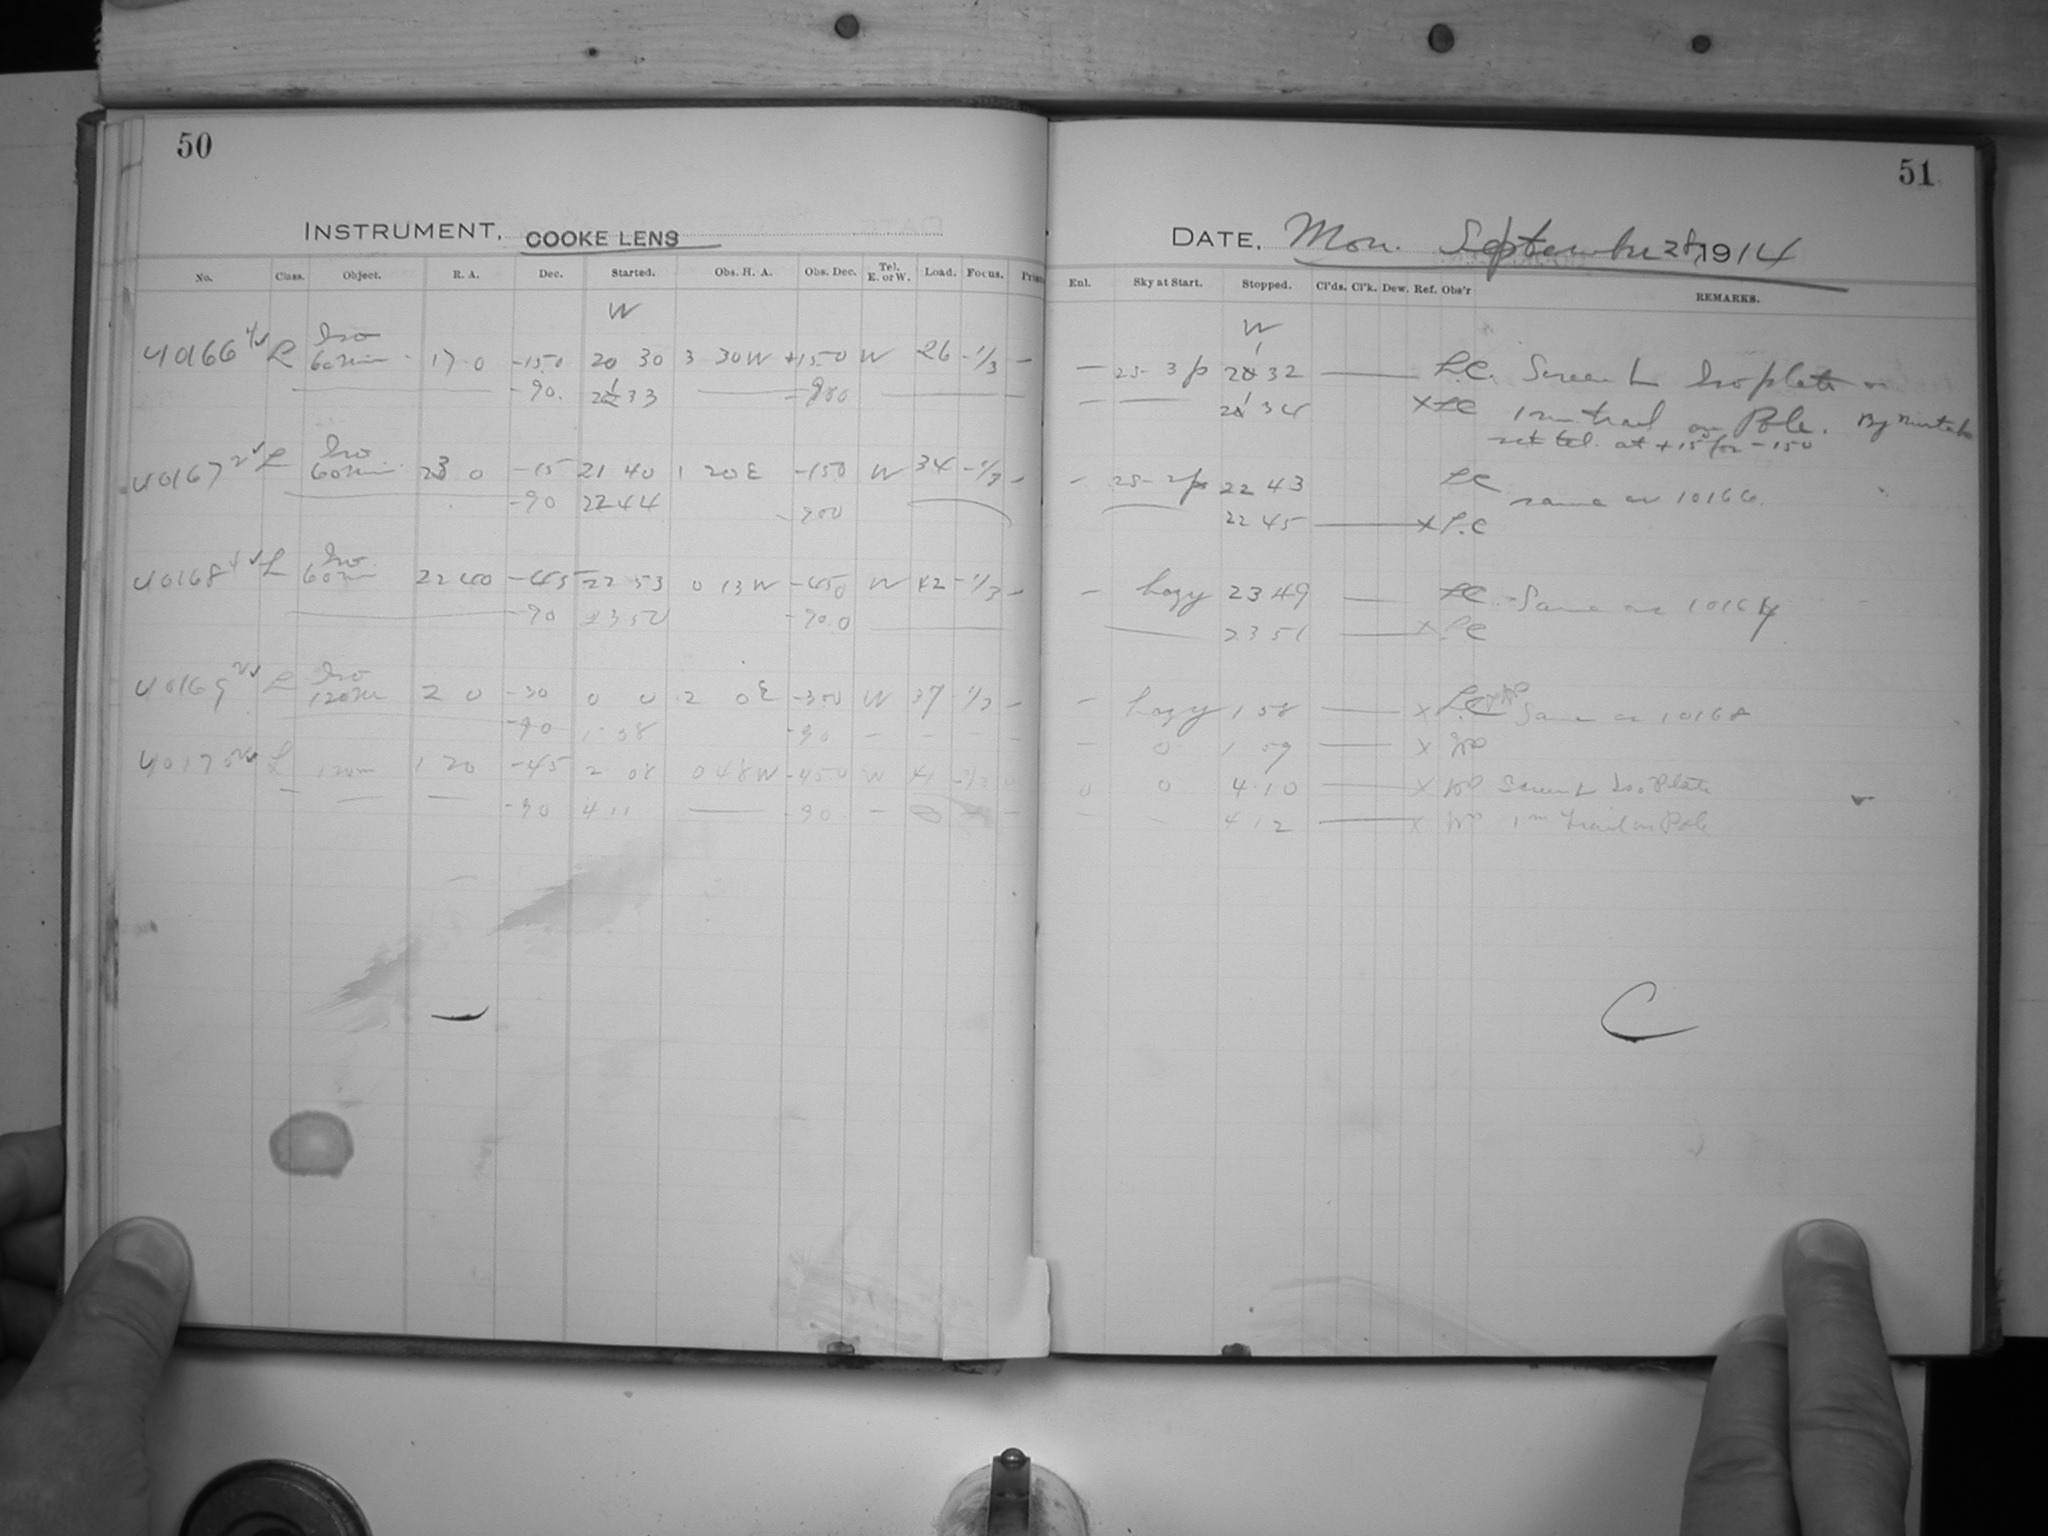 50
51
INSTRUMENT, COOKE LENS
DATE, Mon. September 28, 1914
No. Class. Object. R. A. Dec. Started. Obs. H. A. Obs. Dec. Tel. E. or W. Load. Focus.
Enl. Sky at Start. Stopped. Cl'ds. Cl'k. Dew. Ref. Obs'r REMARKS.
W
W
Iso
40166 L 60min 17 0 -15.0 20 30 3 30W +15.0 W 26 -1/3 —
— 25- 3p 32 L.C. Screen L Iso plate
-90. 33 -900
34 X LC 1m trail on Pole. By mistake
set tel. at +15 for -150
Iso
40167 L 60min 23 0 -15 21 40 1 20E -150 W 34 -1/3 —
- 25- 22 43 LC same as 10166
-90 22 44 -900
22 45 X L.C
Iso
40168 L 60m 22 40 -45 22 53 0 13W -450 W 42 -1/3 —
- hazy 23 49 — LC - Same as
-90 23 50 -90.0
23 51 X LC
Iso
40169 L 120m 2 0 -30 0 0 2 0E -300 W 37 —
- hazy 1 58 X L.C Same as 10168
-90 -90 — — — —
— 0 X
40170 L 120m 1 20 -45 2 08 0 48W -45.0 W 41 0
0 0 4.10 X Screen L Iso Plate
-90 4 11 -90 —
— — 4 12 X 1m Trail on Pole
C